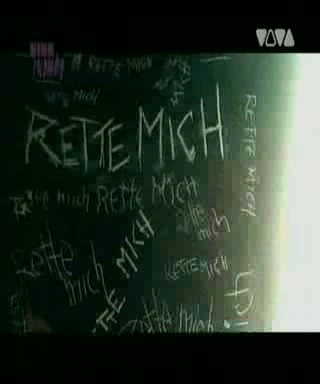 VIVA
RETTE MICH
RETTE MICH
RETTE MICH
RETTE MICH
Rette mich
RETTE MICH
Rette mich
RETTE MICH
Rette mich
RETTE MICH
Rette mich